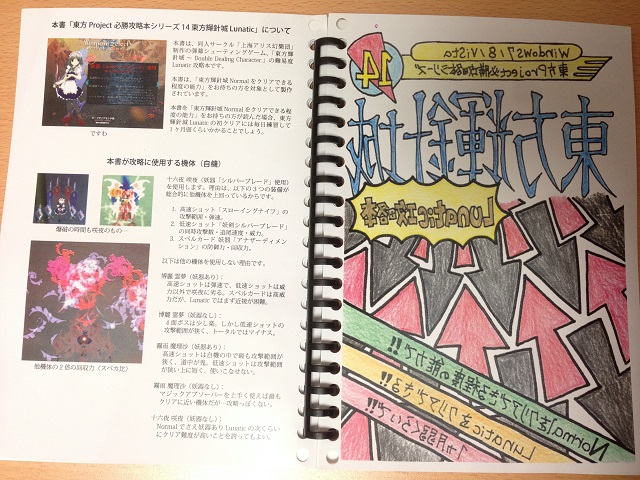 本書「東方 Project 必勝攻略本シリーズ 14 東方輝針城 Lunatic」について
本書は、同人サークル「上海アリス幻樂団」
制作の弾幕シューティングゲーム、「東方輝
針城 ～ Double Dealing Character.」の難易度
Lunatic 攻略本です。
本書は、「東方輝針城 Normal をクリアできる
程度の能力」をお持ちの方を対象として製作
されています。
本書を「東方輝針城 Normal をクリアできる程
度の能力」をお持ちの方が読んだ場合、東方
輝針城 Lunatic の初クリアには毎日練習して
1ヶ月弱くらいかかることでしょう。
ですわ
本書が攻略に使用する機体（自機）
十六夜 咲夜（妖器「シルバーブレード」使用）
を使用します。理由は、以下の3つの装備が
総合的に他機体を上回っているからです。
1. 高速ショット「スローイングナイフ」の
攻撃範囲・弾速。
2. 低速ショット「妖剣シルバーブレード」
の同時攻撃数・追尾速度・威力。
3. スペルカード 妖器「アナザーディメン
ション」の防御力・回収力。
爆破の時間も咲夜のもの…
以下は他の機体を使用しない理由です。
博麗 霊夢（妖器あり）：
高速ショットは弾速で、低速ショットは威
力以外で咲夜に劣る。スペルカードは高威
力だが、Lunatic ではまず近接が困難。
博麗 霊夢（妖器なし）：
4面ボスは少し楽。しかし低速ショットの
攻撃範囲が狭く、トータルではマイナス。
霧雨 魔理沙（妖器あり）：
高速ショットは自機の中で最も攻撃範囲が
狭く、道中が鬼。低速ショットは攻撃範囲
が狭い上に弱く、使いこなせない。
霧雨 魔理沙（妖器なし）：
マジックアブソーバーを上手く使えば最も
クリアに近い機体だが…攻略っぽくない。
十六夜 咲夜（妖器なし）：
Normal でさえ妖器あり Lunatic の次くらい
にクリア難度が高いことを誇ってもよい。
他機体の2倍の回収力（スペカ比）
Windows 7 | 8 | Vista
東方Project必勝攻略本シリーズ
14
東方輝針城
Lunatic攻略本
Normalをクリアできる程度の能力で!!
Lunaticをクリアできる!!
1ヶ月弱くらいで!!